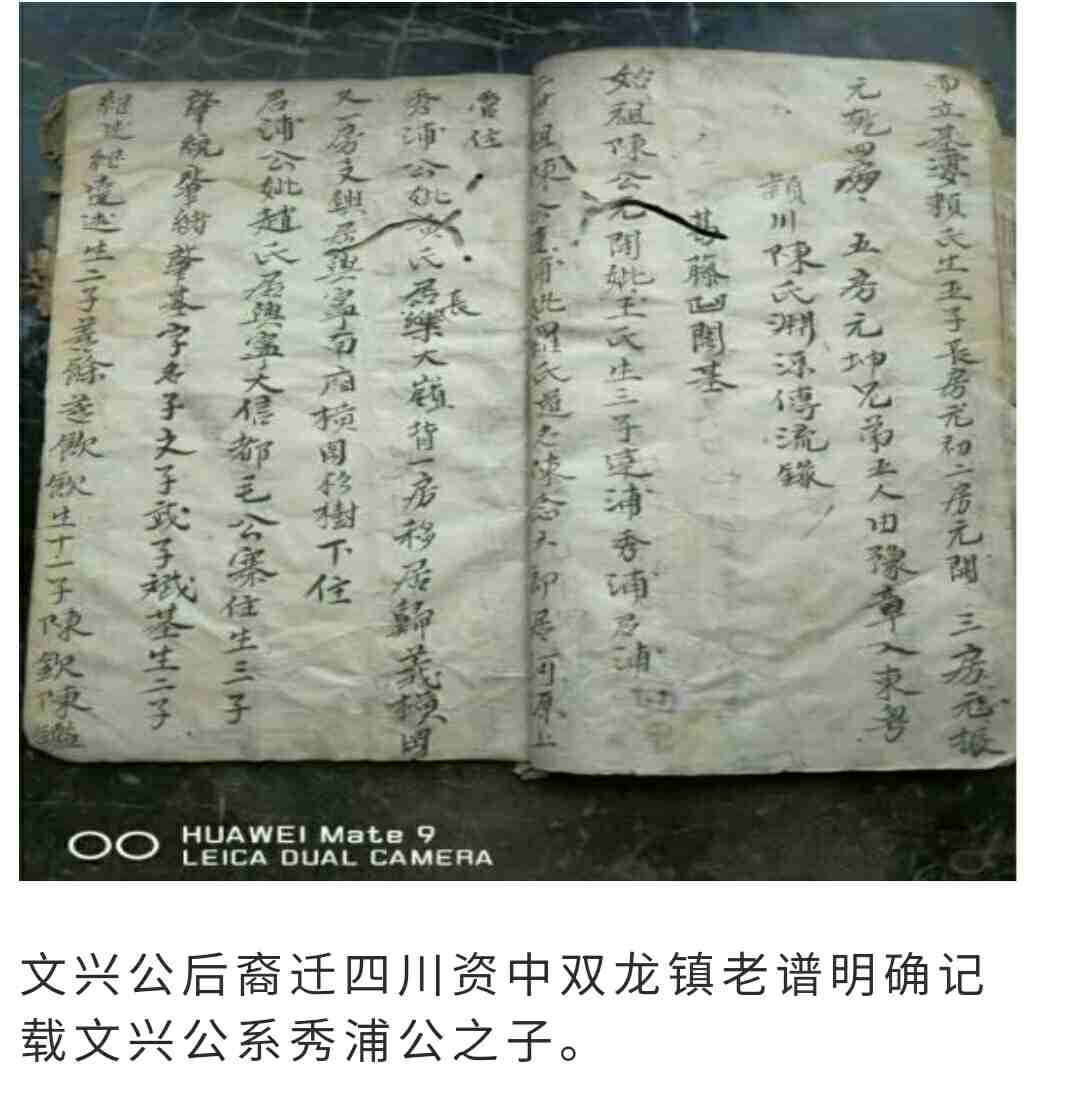 而立基妻赖氏生五子長房元初二房元開 三房元振
元乾四房 五房元坤兄弟五人由豫章入東粤
頴川陳氏淵源傳流錄
葛藤凹開基
始祖陳公元開妣王氏生三子逵浦秀浦君浦
世祖陳公逵浦妣羅氏 陳念 郎居 原上
當住
秀浦公妣黄氏居樂大嶺背一房移居歸義横岡
長
又一房文興居興寧南廂横岡松樹下住
君浦公妣趙氏居興寧大信都毛公寨住生三子
肇統肇緒肇基字名子文子武子斌基生二子
繼述繼遠述生二子 餘 欽欽生十一子陳欽陳
HUAWEI Mate 9
LEICA DUAL CAMERA
文兴公后裔迁四川资中双龙镇老谱明确记
载文兴公系秀浦公之子。